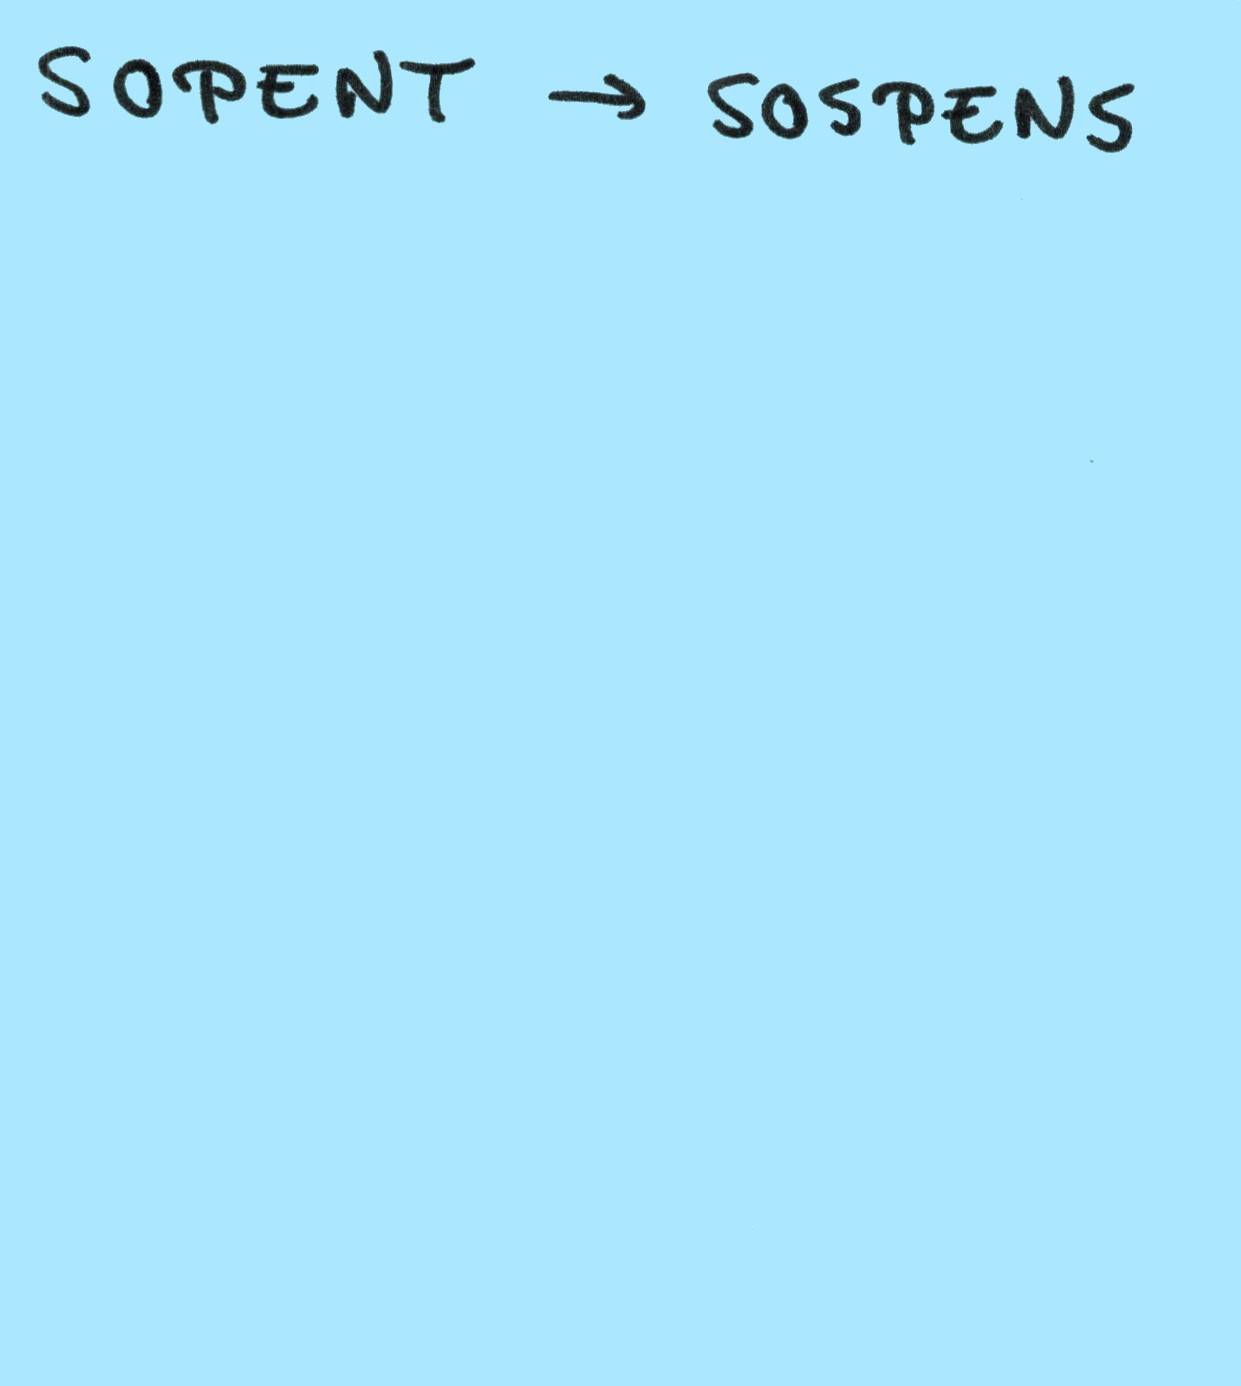 SOPENT → SOSPENS